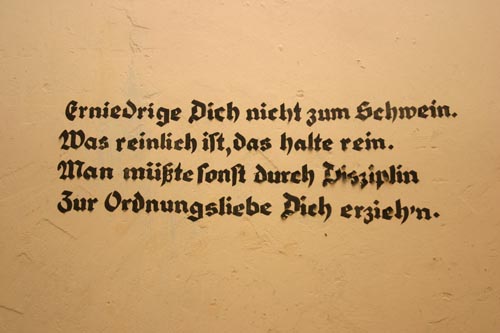 Erniedrige Dich nicht zum Schwein.
Was reinlich ist, das halte rein.
Man müßte sonst durch Disziplin
Zur Ordnungsliebe Dich erzieh'n.